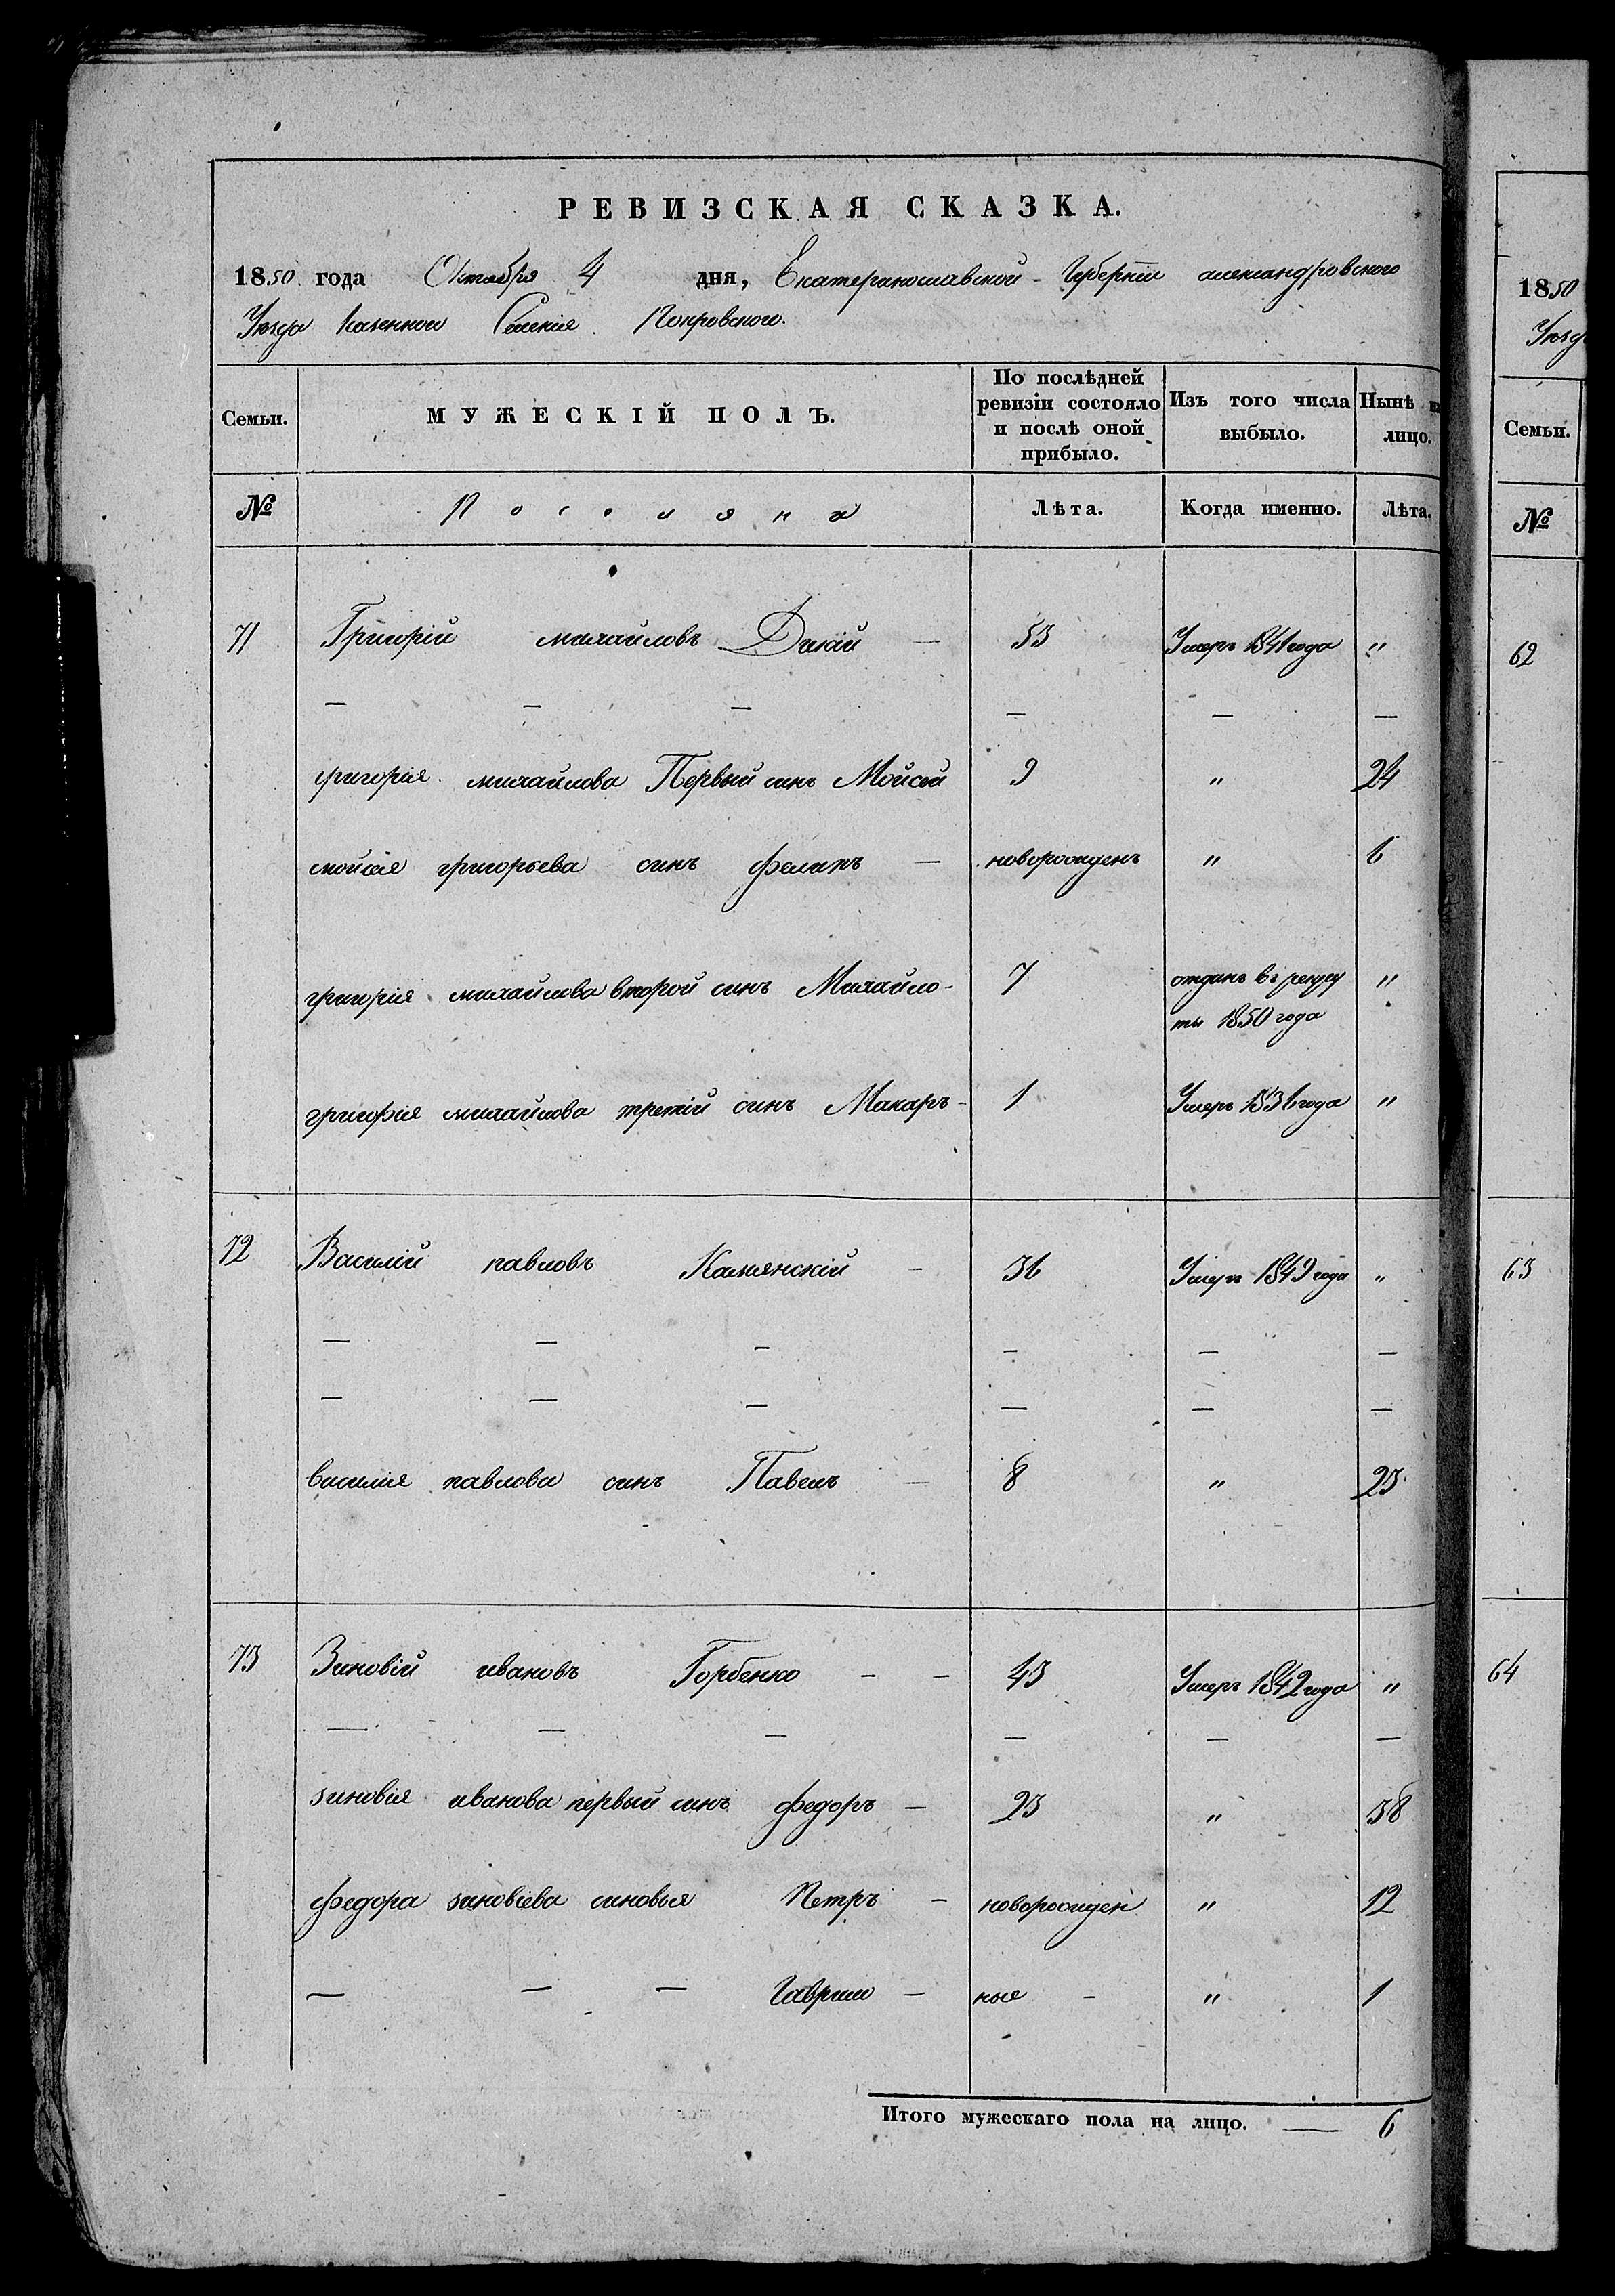 РЕВИЗСКАЯ СКАЗКА.
1850 года Октября 4 дня, Екатеринославской Губернїи александровского
Уезда Казенного Селенія Покровского.
Семьи. МУЖЕСКІЙ ПОЛЪ. По послѣдней ревизіи состояло и послѣ оной прибыло. Изъ того числа выбыло. Нынѣ на лицо.
№ Поселяня Лѣта. Когда именно. Лѣта.
71 Григорій михайловъ Дикій — 53 Умеръ 1841 года "
— — — — — —
григорія михайлова Первый синъ Мойсей 9 " 24
мойсія григорьева синъ филипъ — новорожденъ " 6
григорія михайлова второй синъ Михайло - 7 отданъ въ рекру "
ты 1850 года
григорія михайлова третій синъ Макаръ - 1 Умеръ 1836 года "
72 Василій павловъ Камянскій - 36 Умеръ 1849 года "
— — — — — —
— — — — — —
василія павлова синъ Павелъ — 8 " 23
73 Зиновій ивановъ Горбенко — — 43 Умеръ 1842 года "
— — — — — —
зиновія иванова первый синъ федоръ — 23 " 38
федора зиновіева синовья Петръ — новорожден " 12
— — — Гаврило — ные - " 1
Итого мужескаго пола на лицо. — 6
1850
Уезд
Семьи.
№
62
63
64